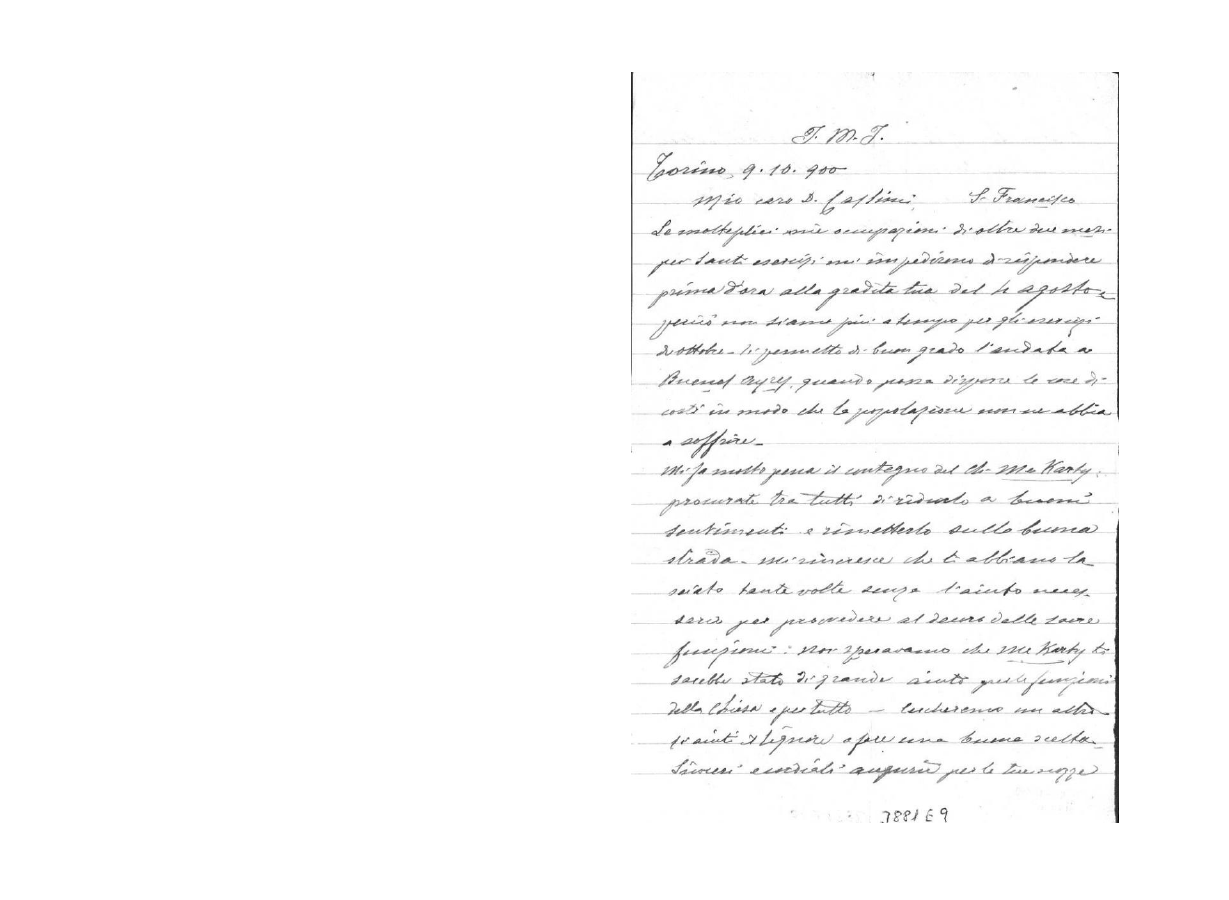 J. M. J.
Torino, 9. 10. 900
Mio caro D. Cassini, S. Francisco
Le molteplici mie occupazioni di oltre due mesi
per santi esercizi mi impedirono di rispondere
prima d'ora alla gradita tua del 4 agosto.
perciò non siamo più a tempo per gli esercizi
di ottobre - ti permetto di buon grado l'andata a
Buenos Ayres, quando possa disporre le cose di
costì in modo che la popolazione non ne abbia
a soffrire -
Mi fa molto pena il contegno del Ch. Mc Karty.
procurate tra tutti di ridurlo a buoni
sentimenti e rimetterlo sulla buona
strada - mi rincresce che ti abbiano la
sciato tante volte senza l'aiuto neces
sario per provvedere al decoro delle sacre
funzioni: Noi speravamo che Mc Karty ti
sarebbe stato di grande aiuto per le funzioni
della Chiesa e per tutto - cercheremo un altro
ci aiuti il Signore a fare una buona scelta -
Sinceri e cordiali augurii per le tue nozze
3881 E 9